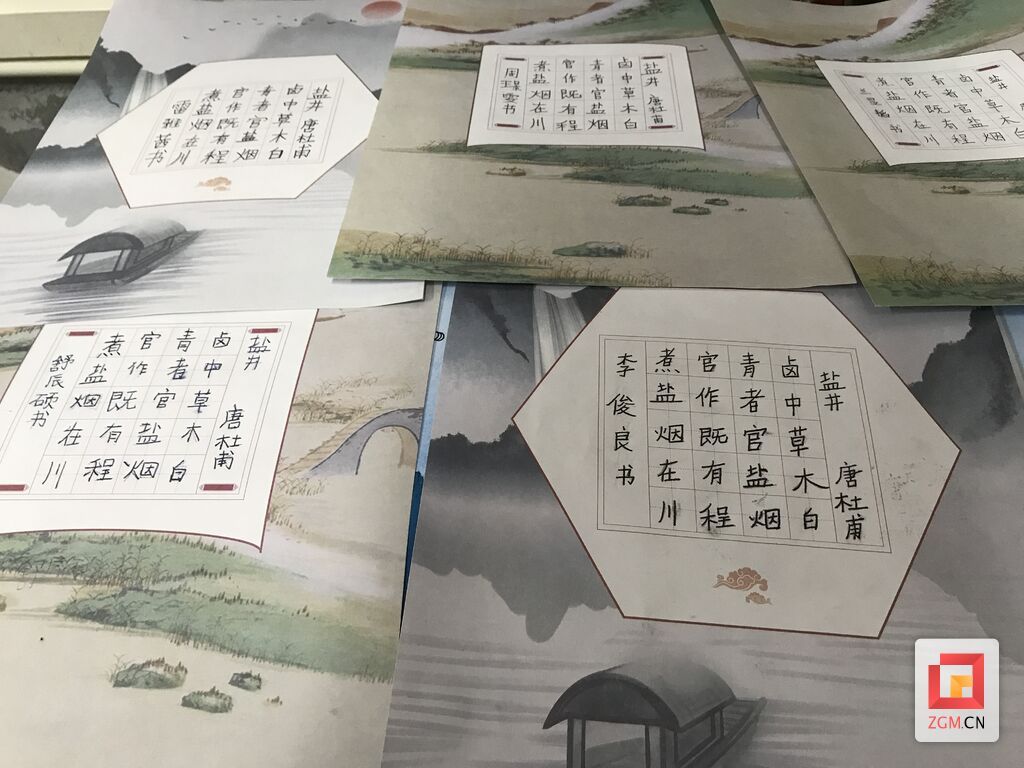 盐井 唐杜甫
卤中草木白
青者官盐烟
官作既有程
煮盐烟在川
雷雅茜书
盐井 唐杜甫
卤中草木白
青者官盐烟
官作既有程
煮盐烟在川
周璟雯书
盐井
卤中草木
青者官盐烟
官作既有程
煮盐烟在川
书
盐井 唐杜甫
卤中草木白
青者官盐烟
官作既有程
煮盐烟在川
舒辰硕书
盐井 唐杜甫
卤中草木白
青者官盐烟
官作既有程
煮盐烟在川
李俊良书
ZGM.CN